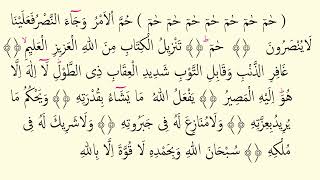 ( حٰمٓ حٰمٓ حٰمٓ حٰمٓ حٰمٓ حٰمٓ حٰمٓ ) حُمَّ الْاَمْرُ وَجَٓاءَ النَّصْرُفَعَلَيْنَا
لَايُنْصَرُونَ ﴿﴾ حٰمٓ ﴿﴾ تَنْزِيلُ الْكِتَابِ مِنَ اللهِ الْعَزِيزِ الْعَلِيمِ ﴿﴾
غَافِرِ الذَّنْبِ وَقَابِلِ التَّوْبِ شَدِيدِ الْعِقَابِ ذِى الطَّوْلِ لَٓا اِلٰهَ اِلَّا
هُوَ اِلَيْهِ الْمَصِيرُ ﴿﴾ يَفْعَلُ اللهُ مَا يَشَٓاءُ بِقُدْرَتِهِ ﴿﴾ وَيَحْكُمُ مَا
يُرِيدُبِعِزَّتِهِ ﴿﴾ وَلَامُنَازِعَ لَهُ فِى جَبَرُوتِهِ ﴿﴾ وَلَاشَرِيكَ لَهُ فِى
مُلْكِهِ ﴿﴾ سُبْحَانَ اللهِ وَبِحَمْدِهِ لَا قُوَّةَ اِلَّا بِاللهِ